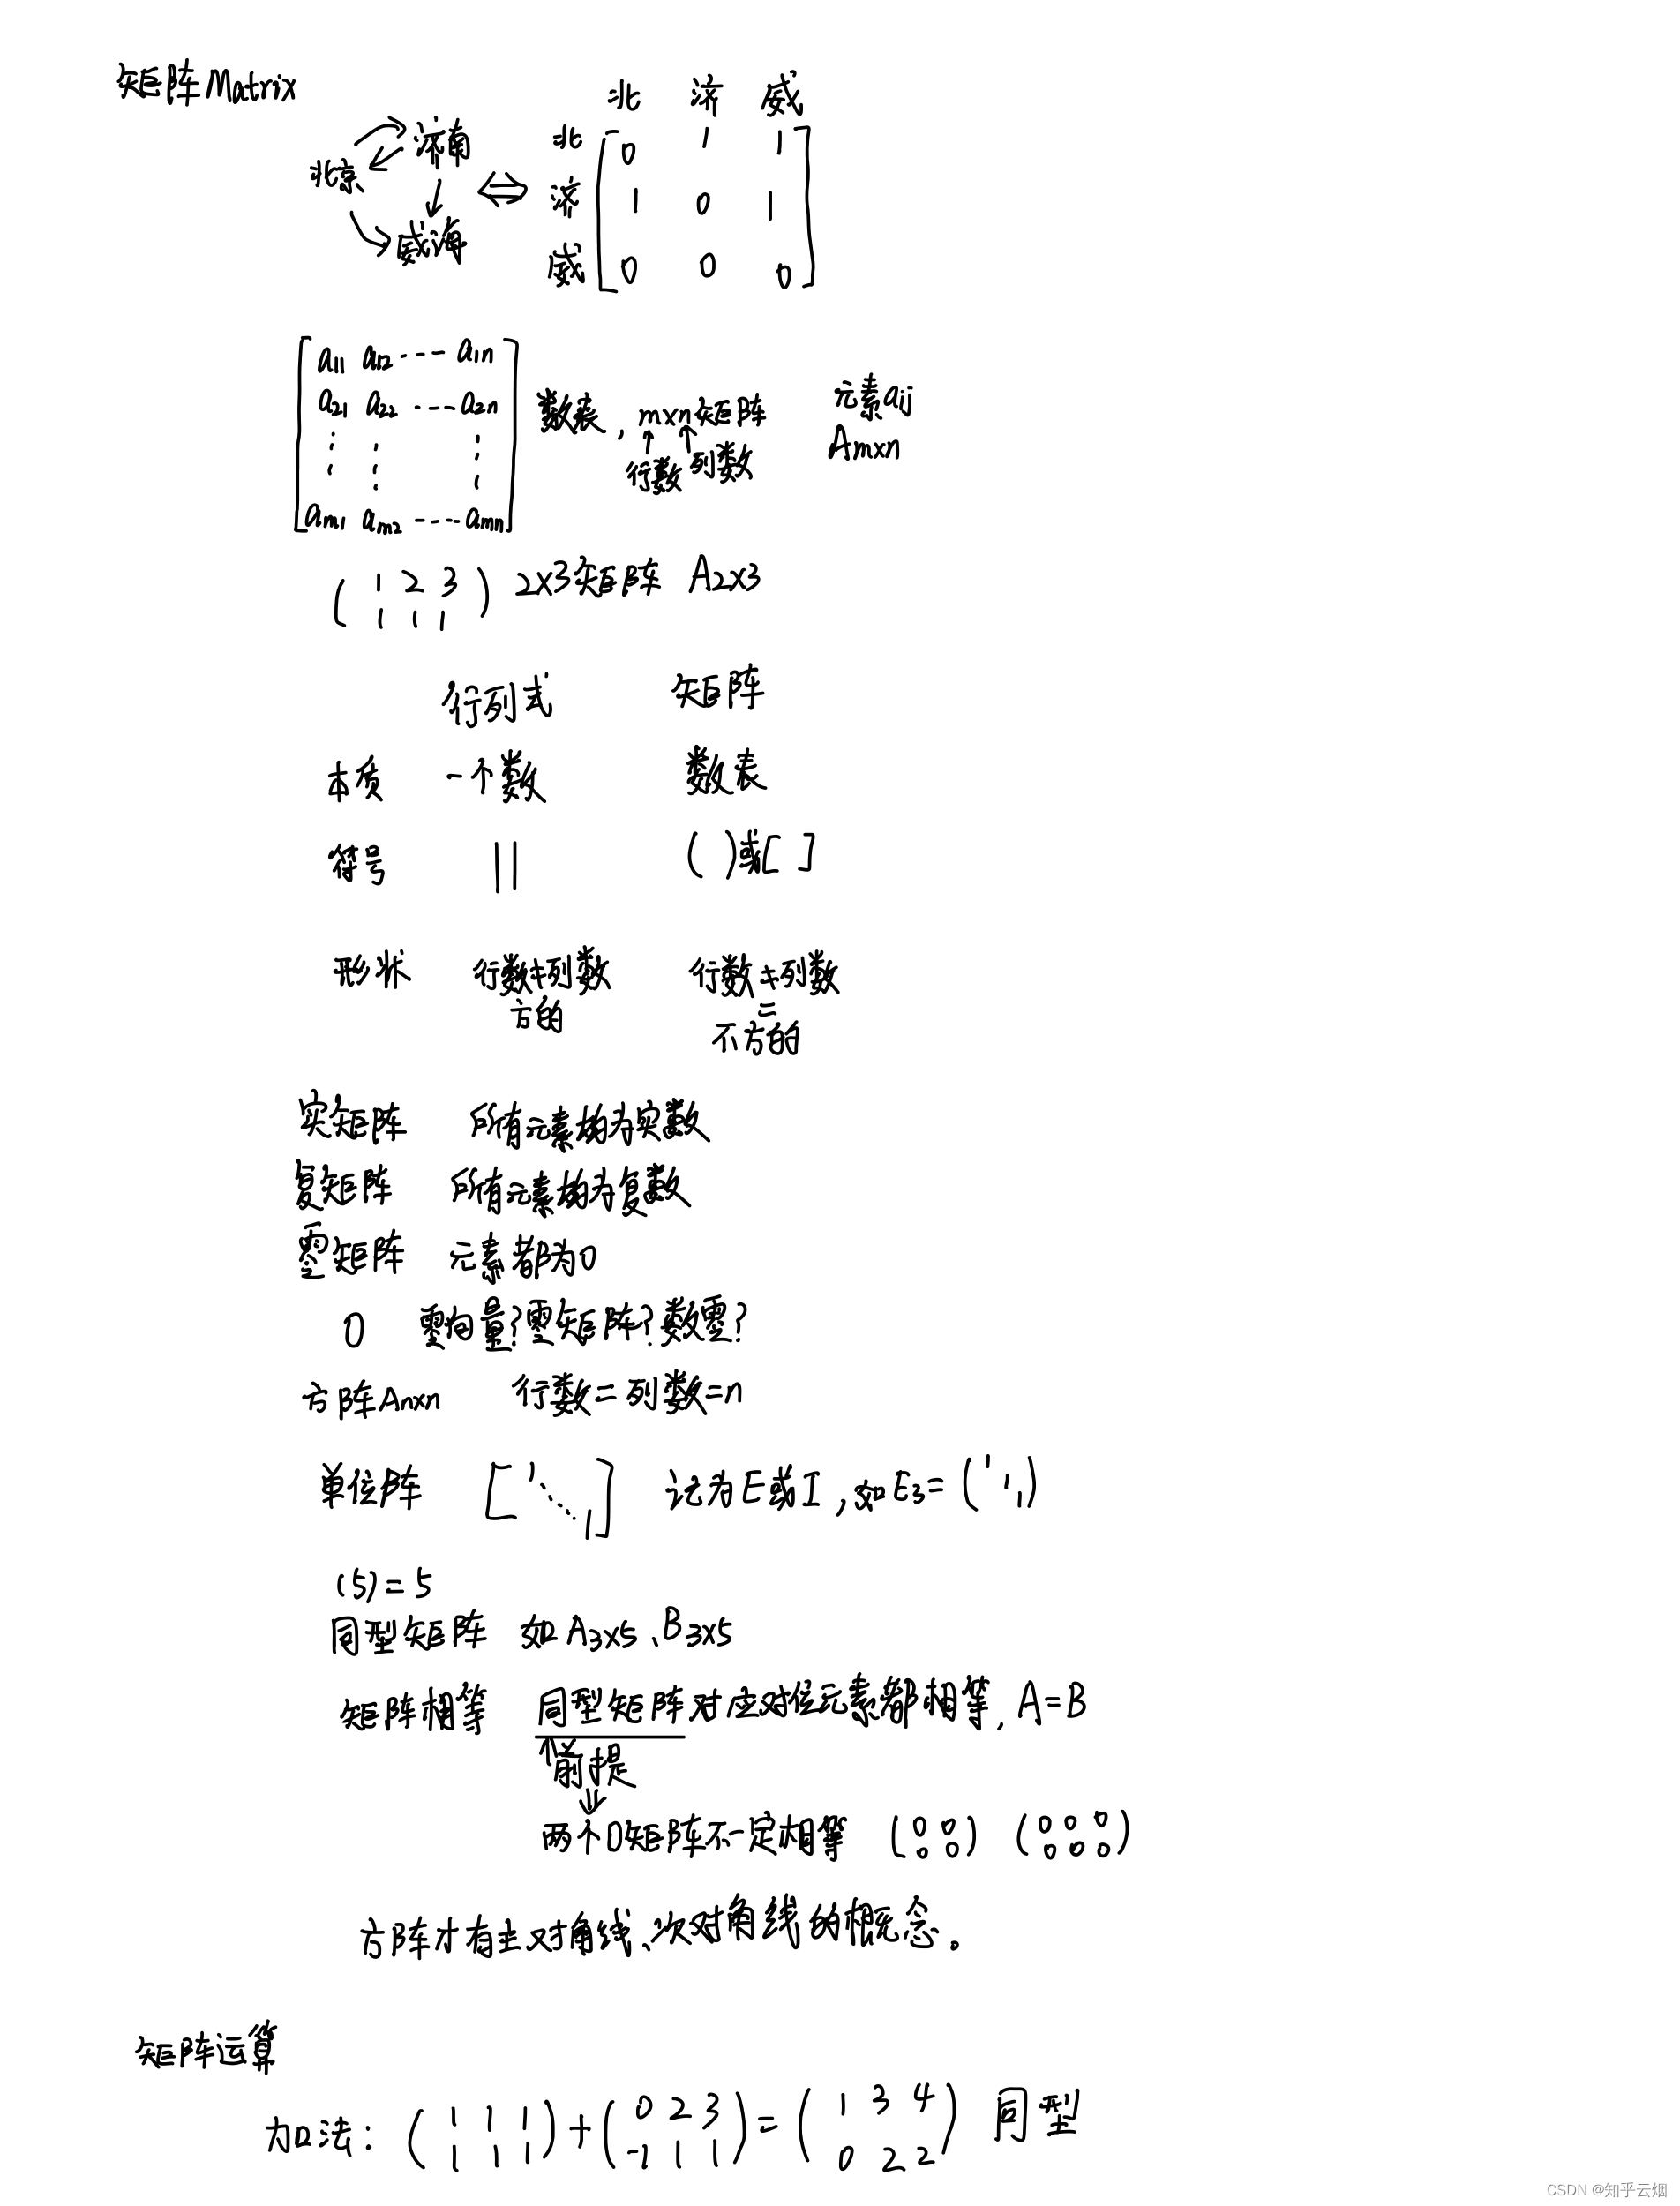 矩阵 Matrix
北 济 威
北京 济南 威海 ⇔
北 [ 0 1 1
济 1 0 1
威 0 0 0 ]
[ a11 a12 ---- a1n
a21 a22 ---- a2n
⋮ ⋮ ⋮
am1 am2 ---- amn ]
数表, m×n矩阵
行数 列数
元素aij
Am×n
( 1 2 3
1 1 1 ) 2×3矩阵 A2×3
行列式 矩阵
本质 一个数 数表
符号 | | ( )或[ ]
形状 行数=列数 行数≠列数
方的 =
不方的
实矩阵 所有元素均为实数
复矩阵 所有元素均为复数
零矩阵 元素都为0
0 零向量?零矩阵?数零?
方阵An×n 行数=列数=n
单位阵 [1 ⋱ 1] 记为E或I, 如E3=(1 1 1)
(5)=5
同型矩阵 如A3×5、B3×5
矩阵相等 同型矩阵对应对位元素都相等, A=B
↑前提
⇓
两个0矩阵不一定相等 (0 0 (0 0 0
0 0) 0 0 0)
方阵才有主对角线、次对角线的概念。
矩阵运算
加法: (1 1 1)+(0 2 3)=(1 3 4) 同型
(1 1 1) (-1 1 1) (0 2 2)
CSDN @知乎云烟